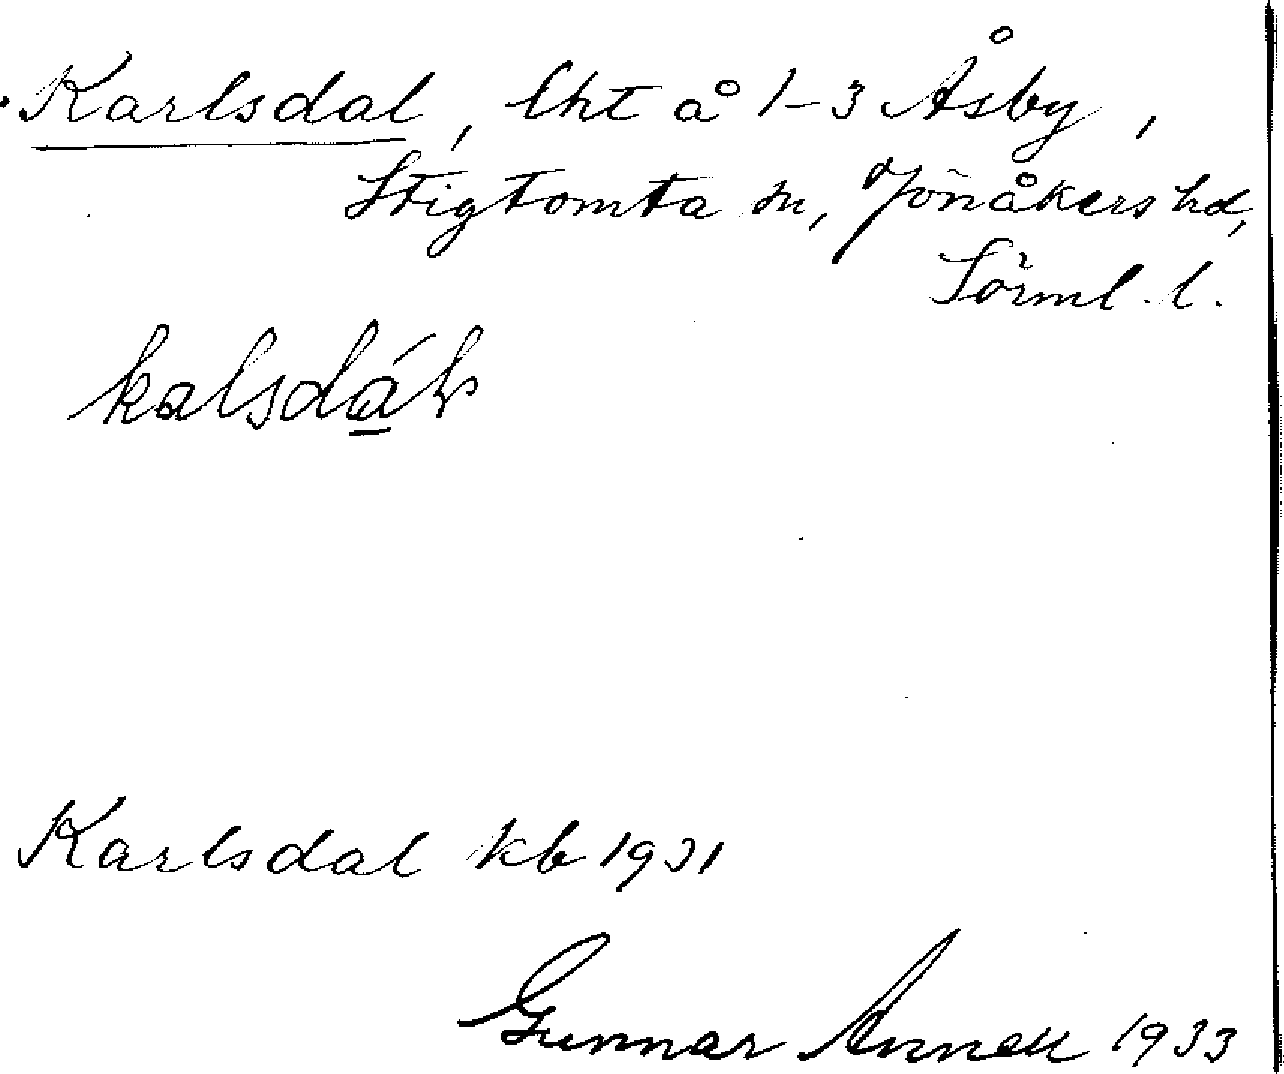 Karlsdal, lht å 1-3 Åsby,
Stigtomta sn, Jönåkers hd,
Sörml. l.
Karlsdal kb 1931
Gunnar Annell 1933